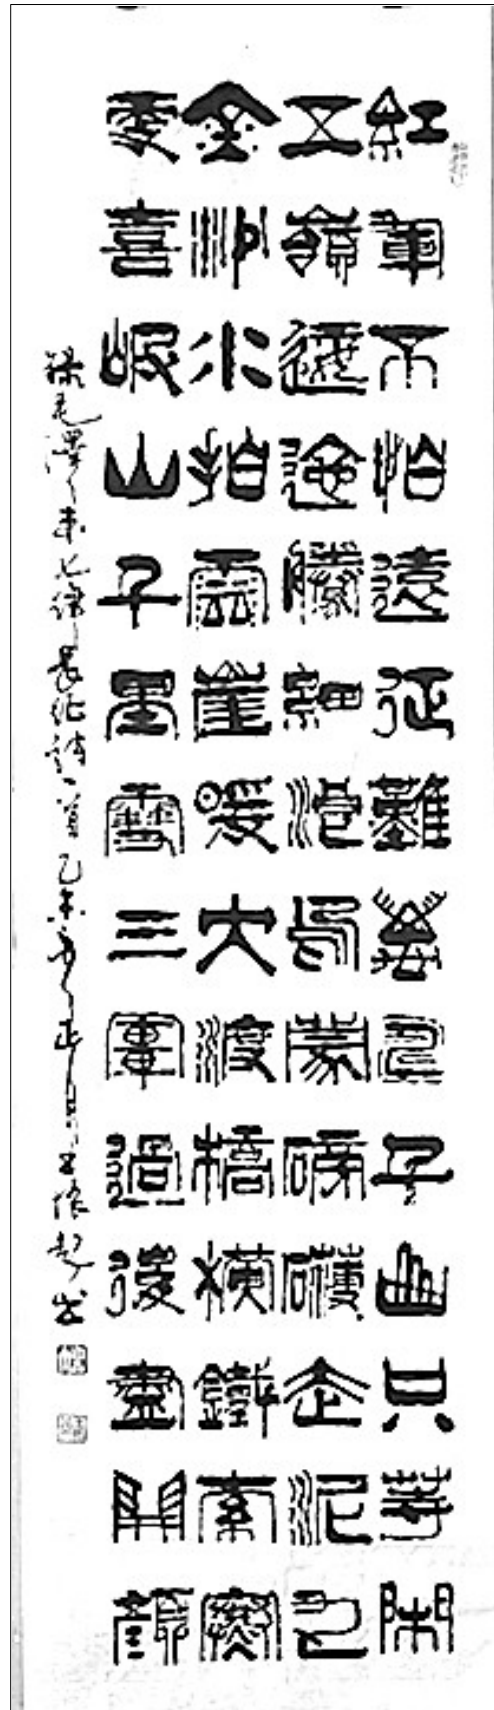 紅軍不怕遠征難萬水千山只等閑
五嶺逶迤騰細浪烏蒙磅礴走泥丸
金沙水拍雲崖暖大渡橋橫鐵索寒
更喜岷山千里雪三軍過後盡開顏
錄毛澤東七律長征詩一首乙未年正月書